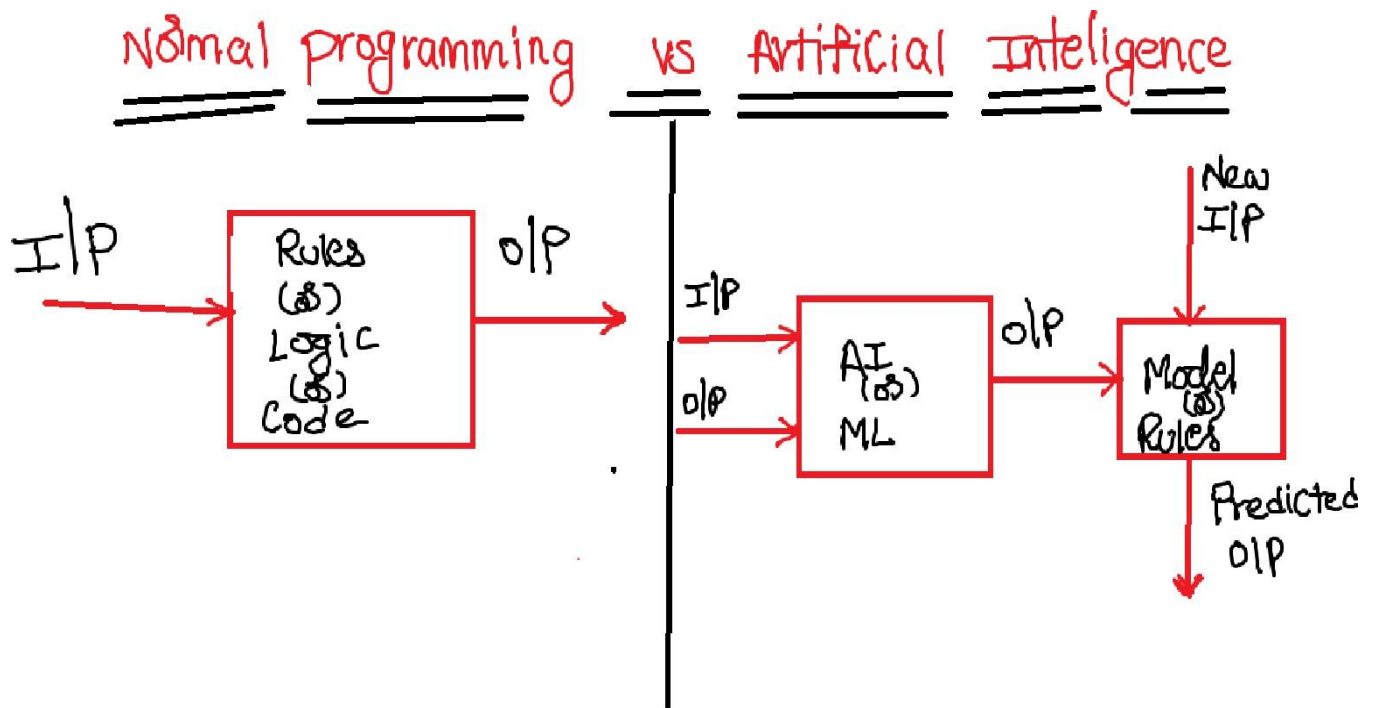 Normal Programming vs Artificial Inteligence
I/P
Rules
(or)
Logic
(or)
Code
O/P
I/P
O/P
AI
(or)
ML
O/P
New
I/P
Model
(or)
Rules
Predicted
O/P